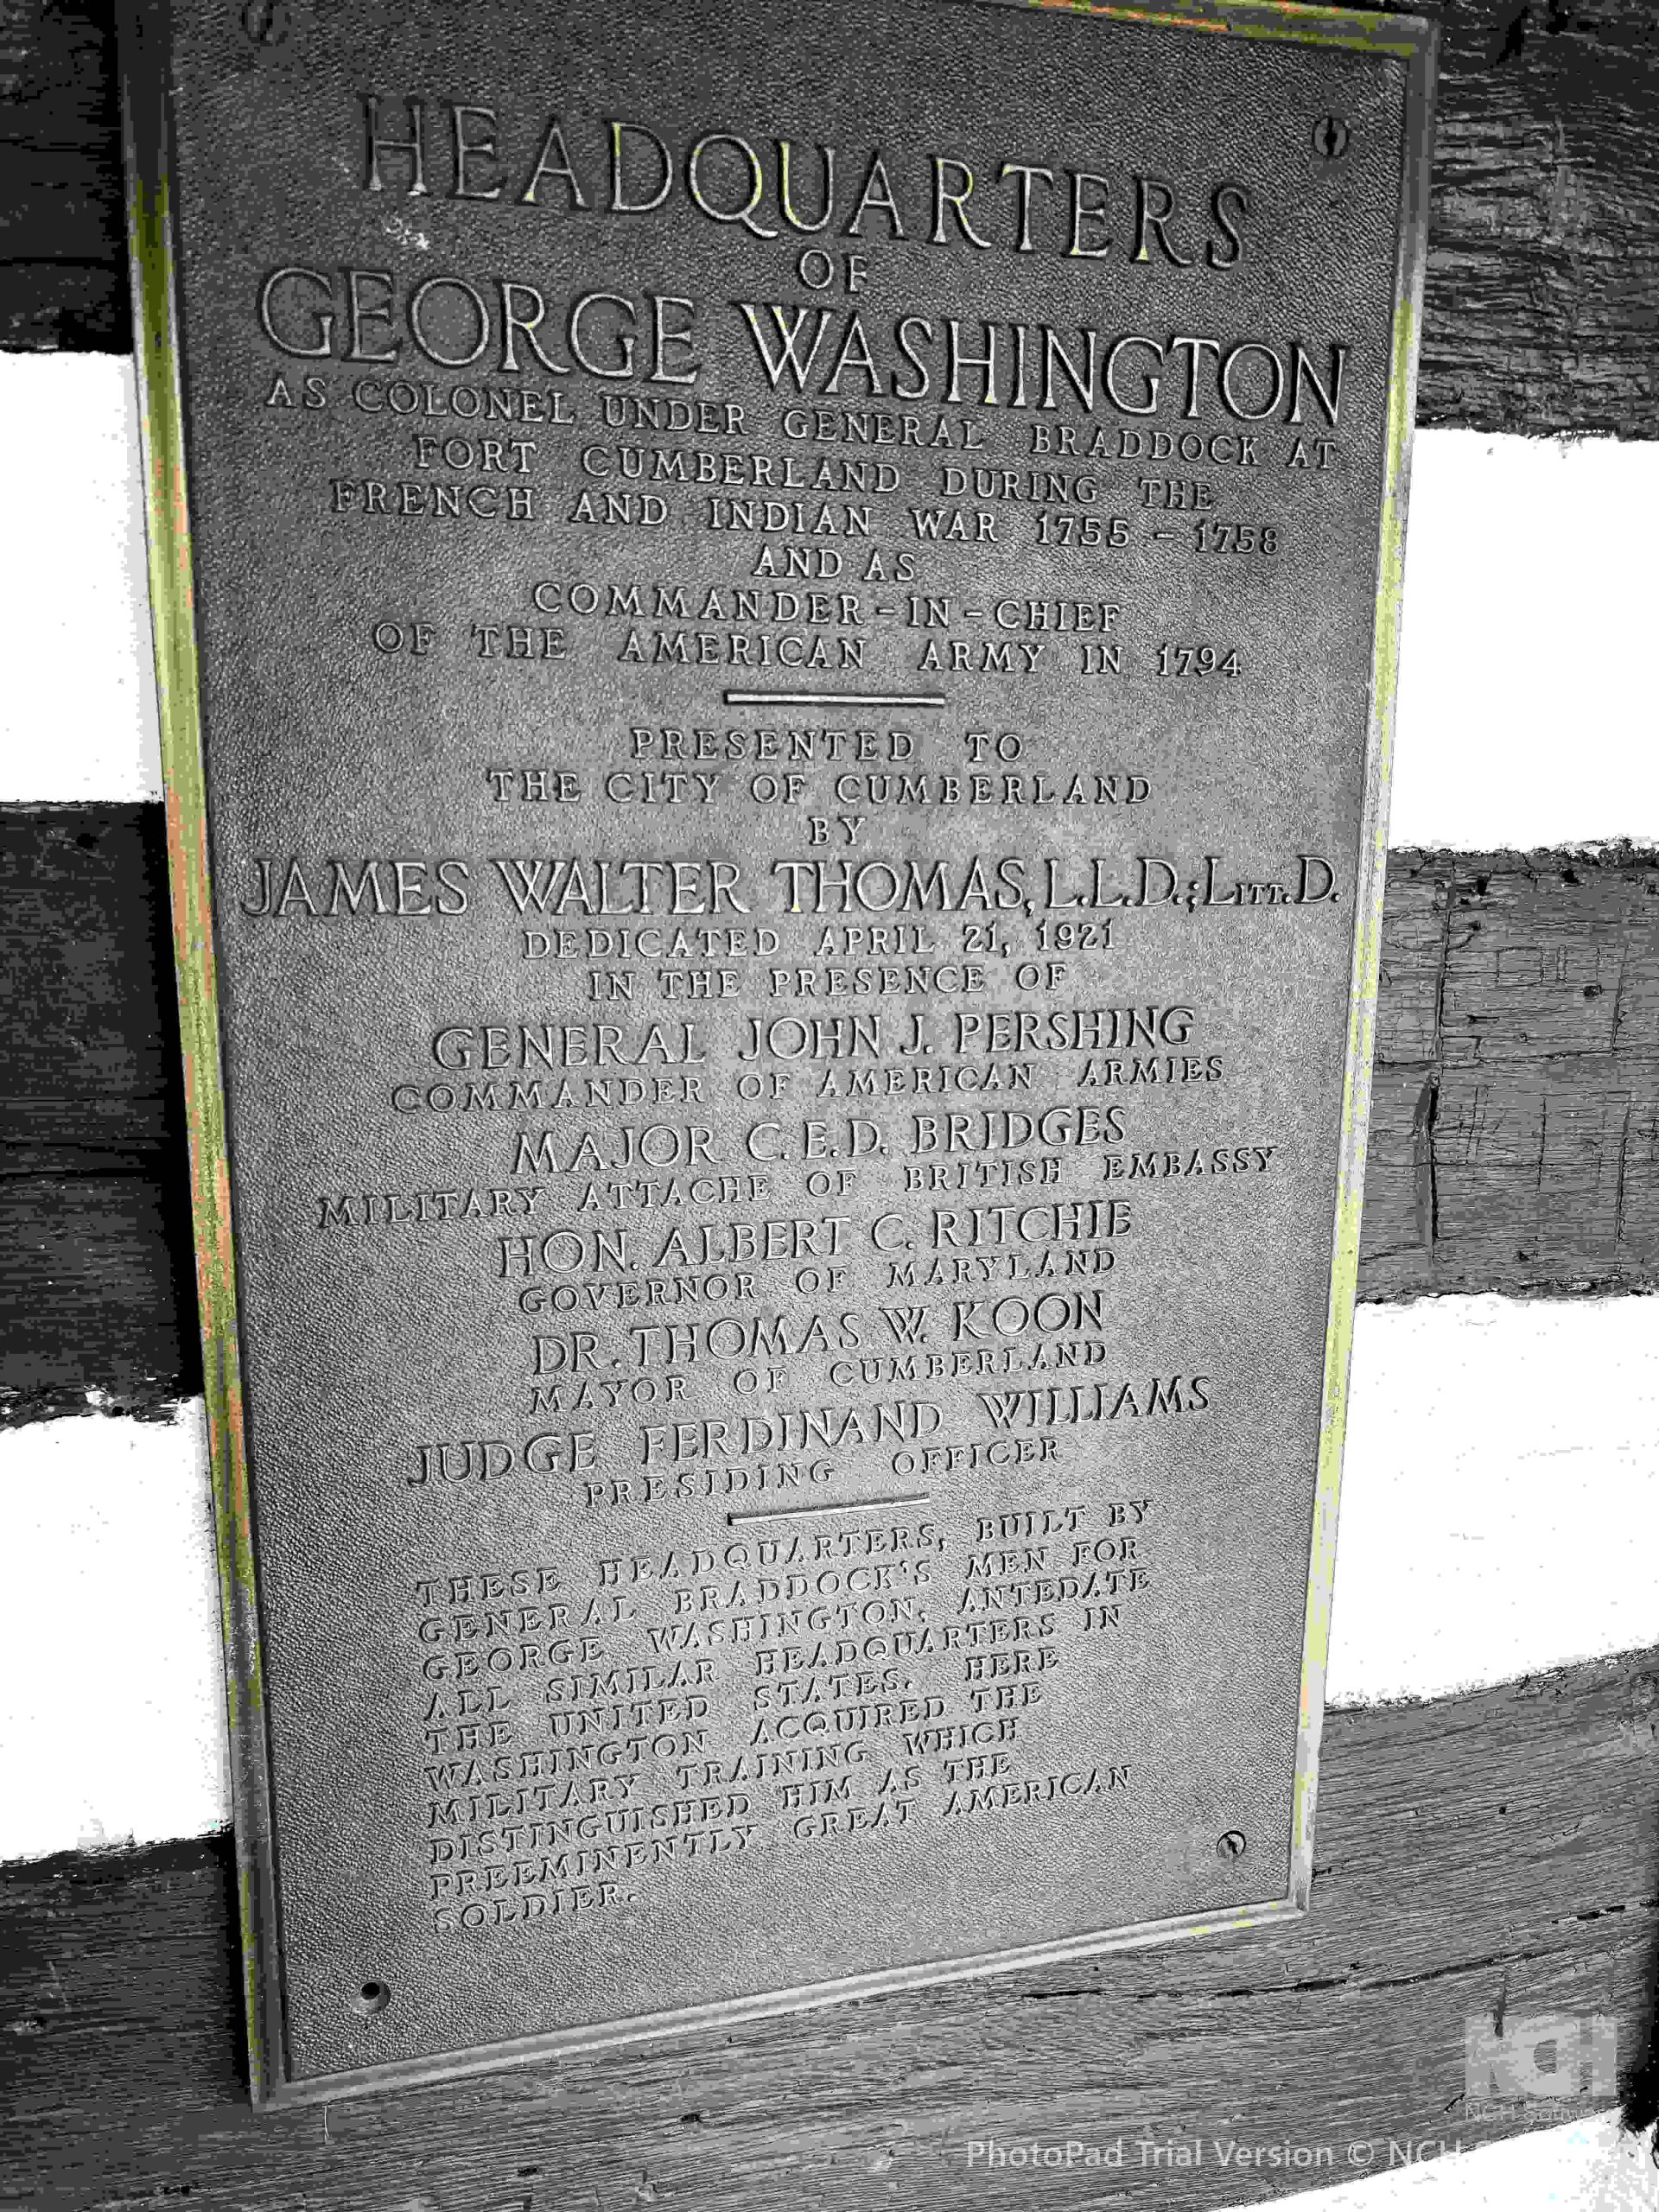 HEADQUARTERS
OF
GEORGE WASHINGTON
AS COLONEL UNDER GENERAL BRADDOCK AT
FORT CUMBERLAND DURING THE
FRENCH AND INDIAN WAR 1755 - 1758
AND AS
COMMANDER-IN-CHIEF
OF THE AMERICAN ARMY IN 1794
PRESENTED TO
THE CITY OF CUMBERLAND
BY
JAMES WALTER THOMAS, L.L.D.; LITT.D.
DEDICATED APRIL 21, 1921
IN THE PRESENCE OF
GENERAL JOHN J. PERSHING
COMMANDER OF AMERICAN ARMIES
MAJOR C.E.D. BRIDGES
MILITARY ATTACHE OF BRITISH EMBASSY
HON. ALBERT C. RITCHIE
GOVERNOR OF MARYLAND
DR. THOMAS W. KOON
MAYOR OF CUMBERLAND
JUDGE FERDINAND WILLIAMS
PRESIDING OFFICER
THESE HEADQUARTERS, BUILT BY
GENERAL BRADDOCK'S MEN FOR
GEORGE WASHINGTON, ANTEDATE
ALL SIMILAR HEADQUARTERS IN
THE UNITED STATES. HERE
WASHINGTON ACQUIRED THE
MILITARY TRAINING WHICH
DISTINGUISHED HIM AS THE
PREEMINENTLY GREAT AMERICAN
SOLDIER.
NCH
NCH
PhotoPad Trial Version © NCH